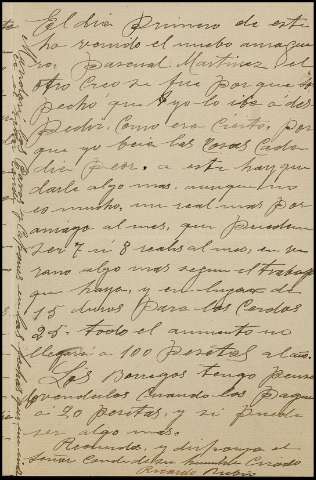 El dia primero de este
ha venido el nuebo amague
ro, Pascual Martinez el
otro Creo se fue por que so
pecho que yo lo iba á des
pedir, Como era Cierto, por
que yo beia las Cosas Cada
dia peor. a este hay que
darle algo mas, aunque no
es mucho, un real mas por
amago al mes, que pueden
ser 7 ú 8 reales al mes, en ve
rano algo mas segun el trabajo
que haya, y en lugar de
15 duros para los Cerdos
25. todo el aumento no
llegará a 100 pesetas al año.
Los Borregos tengo pensa
venderlos Cuando los paguen
á 20 pesetas, y si puede
ser algo mas.
Recuerdos, y disponga el
Señor Conde de su humilde Criado
Ricardo Rubio